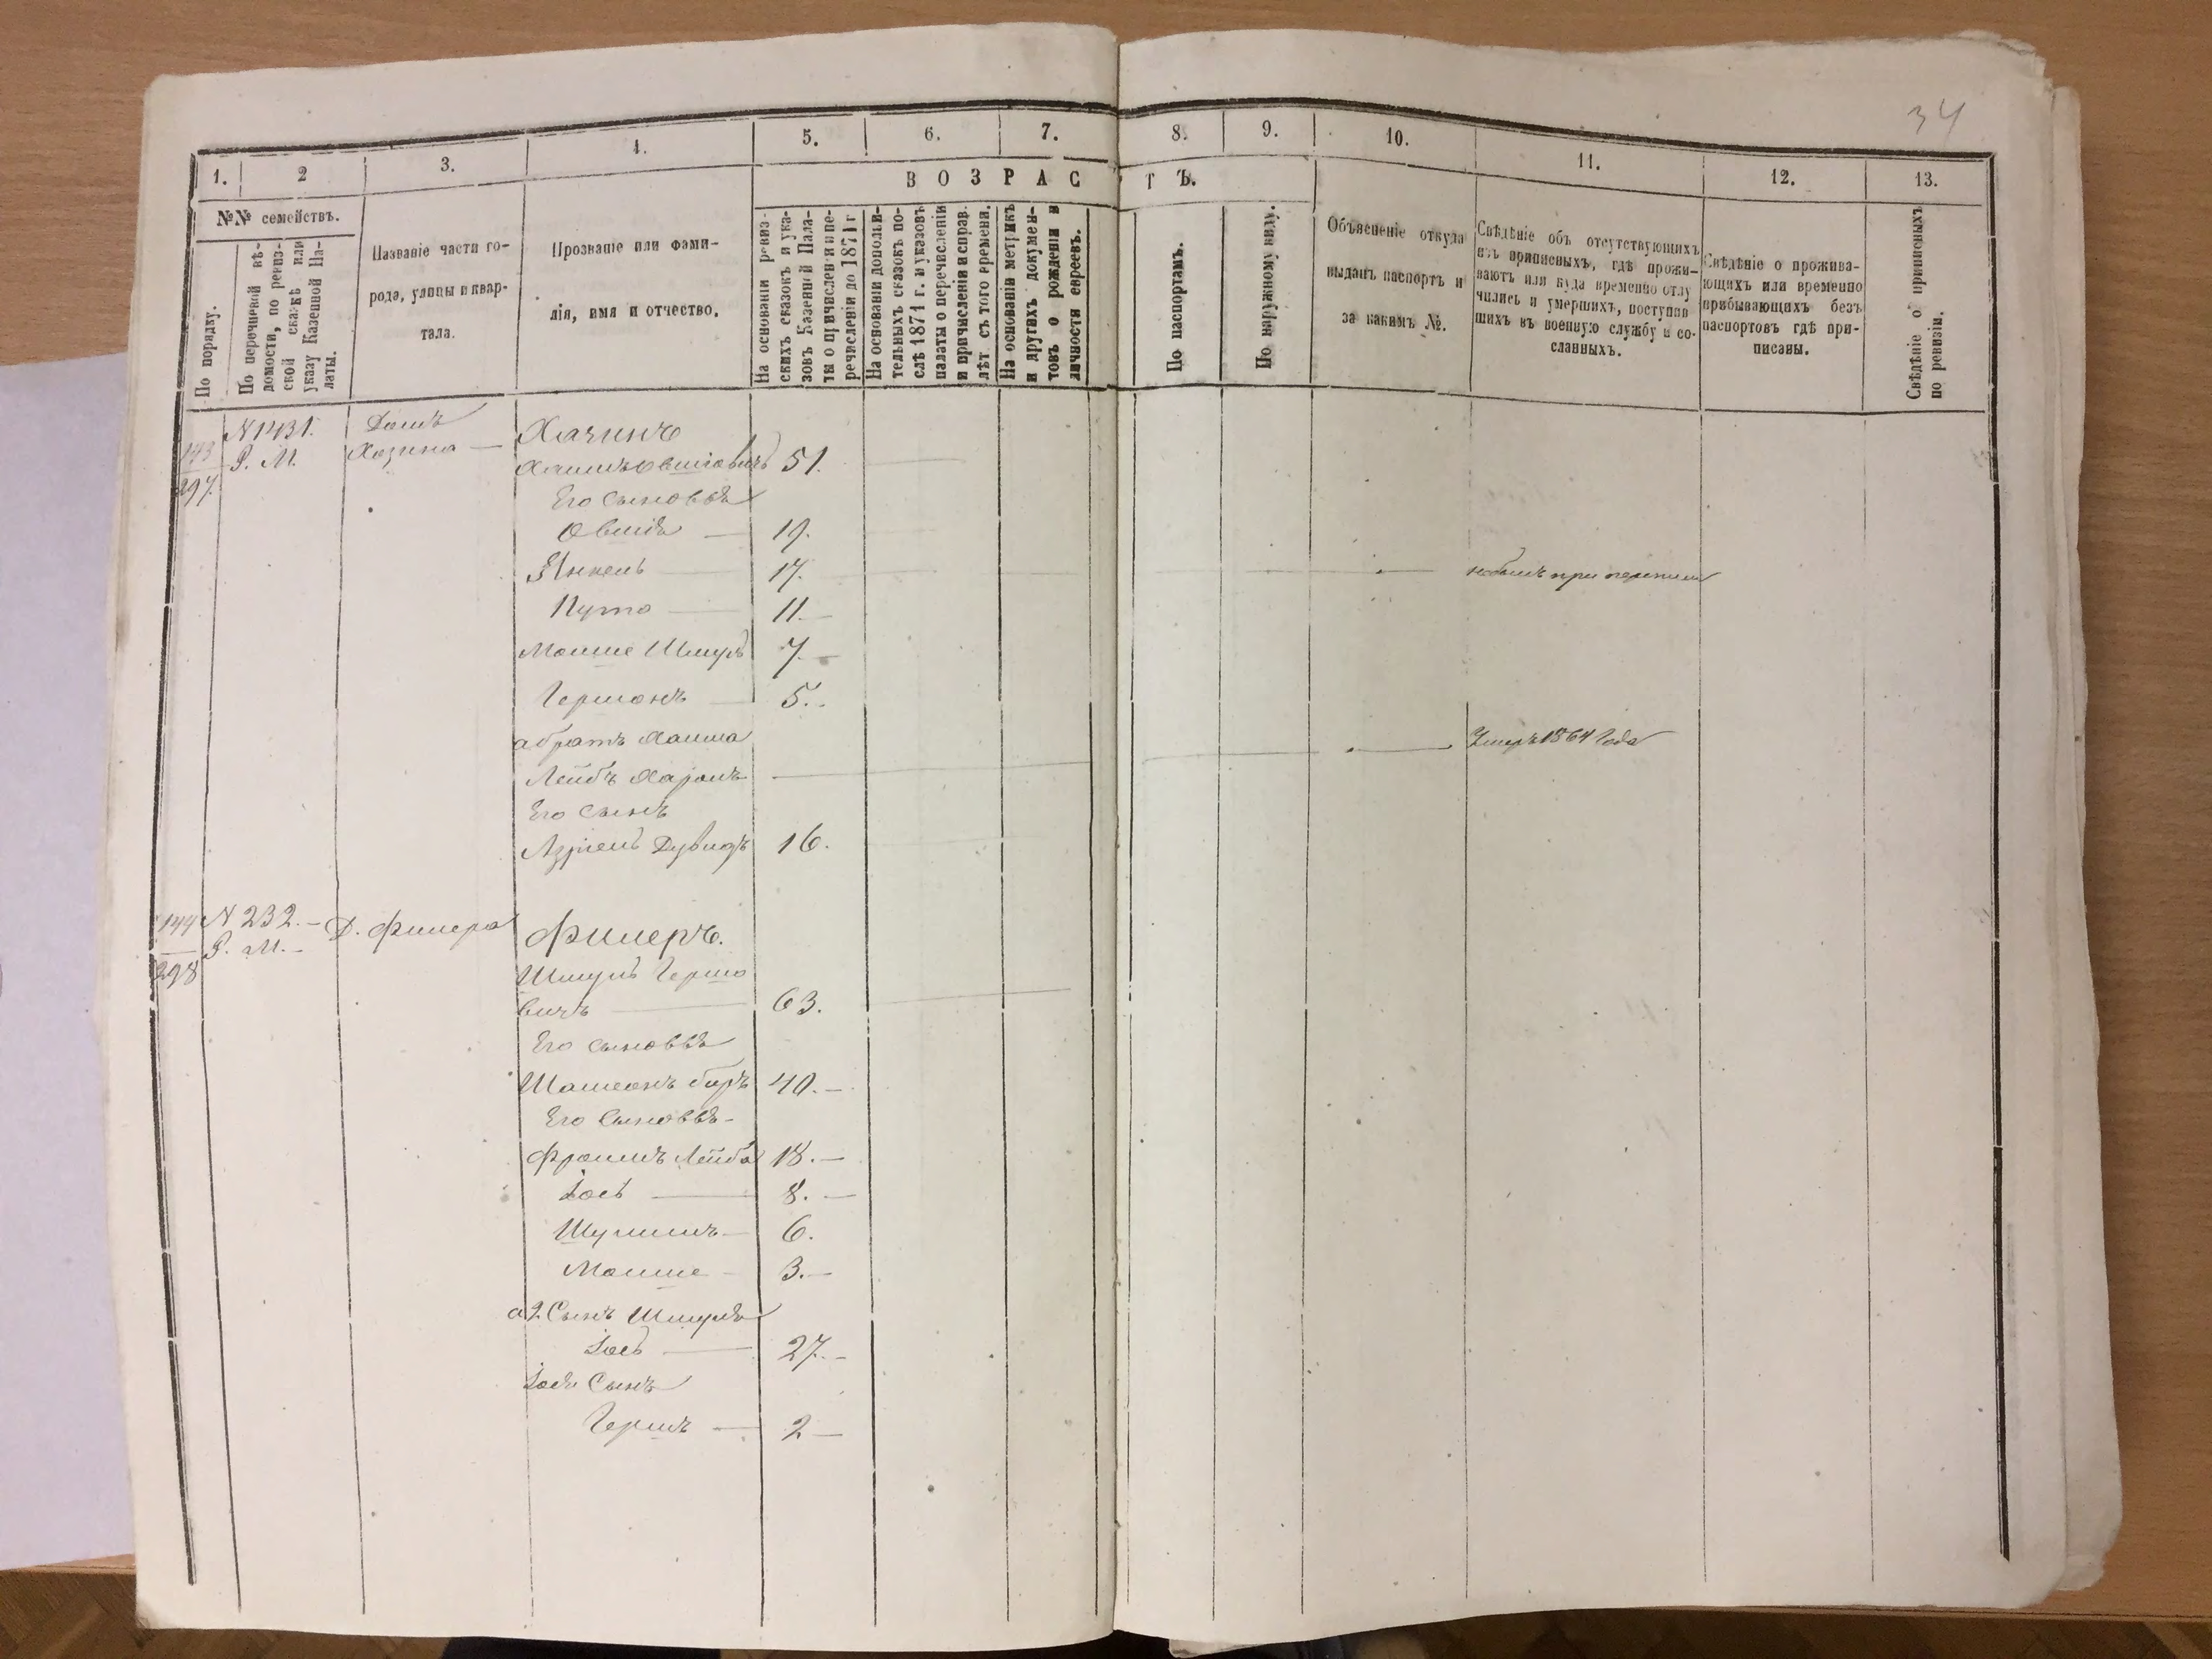 34
1.
2
3.
4.
5.
6.
7.
8.
9.
10.
11.
12.
13.
В О З Р А С Т Ъ.
№№ семействъ.
По порядку.
По перечневой вѣ-
домости, по ревиз-
ской сказкѣ или
указу Казенной Па-
латы.
Названіе части го-
рода, улицы и квар-
тала.
Прозваніе или фами-
лія, имя и отчество.
На основаніи ревиз-
скихъ сказокъ и ука-
зовъ Казенной Пала-
ты о причислен и и пе-
речислені́и до 1871 г
На основаніи дополни-
тельныхъ сказокъ по-
слѣ 1871 г. и указовъ
палаты о перечисленіи
и причисленіи и справ.
лѣт. съ того времени.
На основаніи метрикъ
и другихъ докумен-
товъ о рожденіи и
личности евреевъ.
По паспортамъ.
По наружному виду.
Объясненіе откуда
выданъ паспортъ и
за какимъ №.
Свѣдѣніе объ отсутствующихъ
изъ приписныхъ, гдѣ прожи-
ваютъ или куда временно отлу
чились и умершихъ, поступив
шихъ въ военную службу и со-
сланныхъ.
Свѣдѣніе о прожива-
ющихъ или временно
прибывающихъ безъ
паспортовъ гдѣ при-
писаны.
Свѣдѣніе о приписныхъ
по ревизіи.
143
297.
N 1431.
Р. М.
Домъ
Хазина —
Хазинъ
Хаимъ Овшіовичъ 51.
Его сыновья
Овшія — 19.
Янкель — 17. не былъ при переписи
Нута — 11. —
Моише Шмуль 7. —
Гершонъ — 5. .
а братъ Хаима
Лейбъ Харонъ — Умеръ 1864 Года
Его сынъ
Азріель Дувидъ 16.
144
298
N 232. —
Р. М. —
Д. Фишера
Фишеръ.
Шмуль Гершо
вичъ — 63.
Его сыновья
Шамсонъ Беръ 40. —
Его сыновья —
Фроимъ Лейба 18. —
Іось — 8. —
Шулимъ — 6.
Моише — 3. —
а 2. Сынъ Шмуля
Іось — 27. —
Іося Сынъ
Гершъ — 2 —